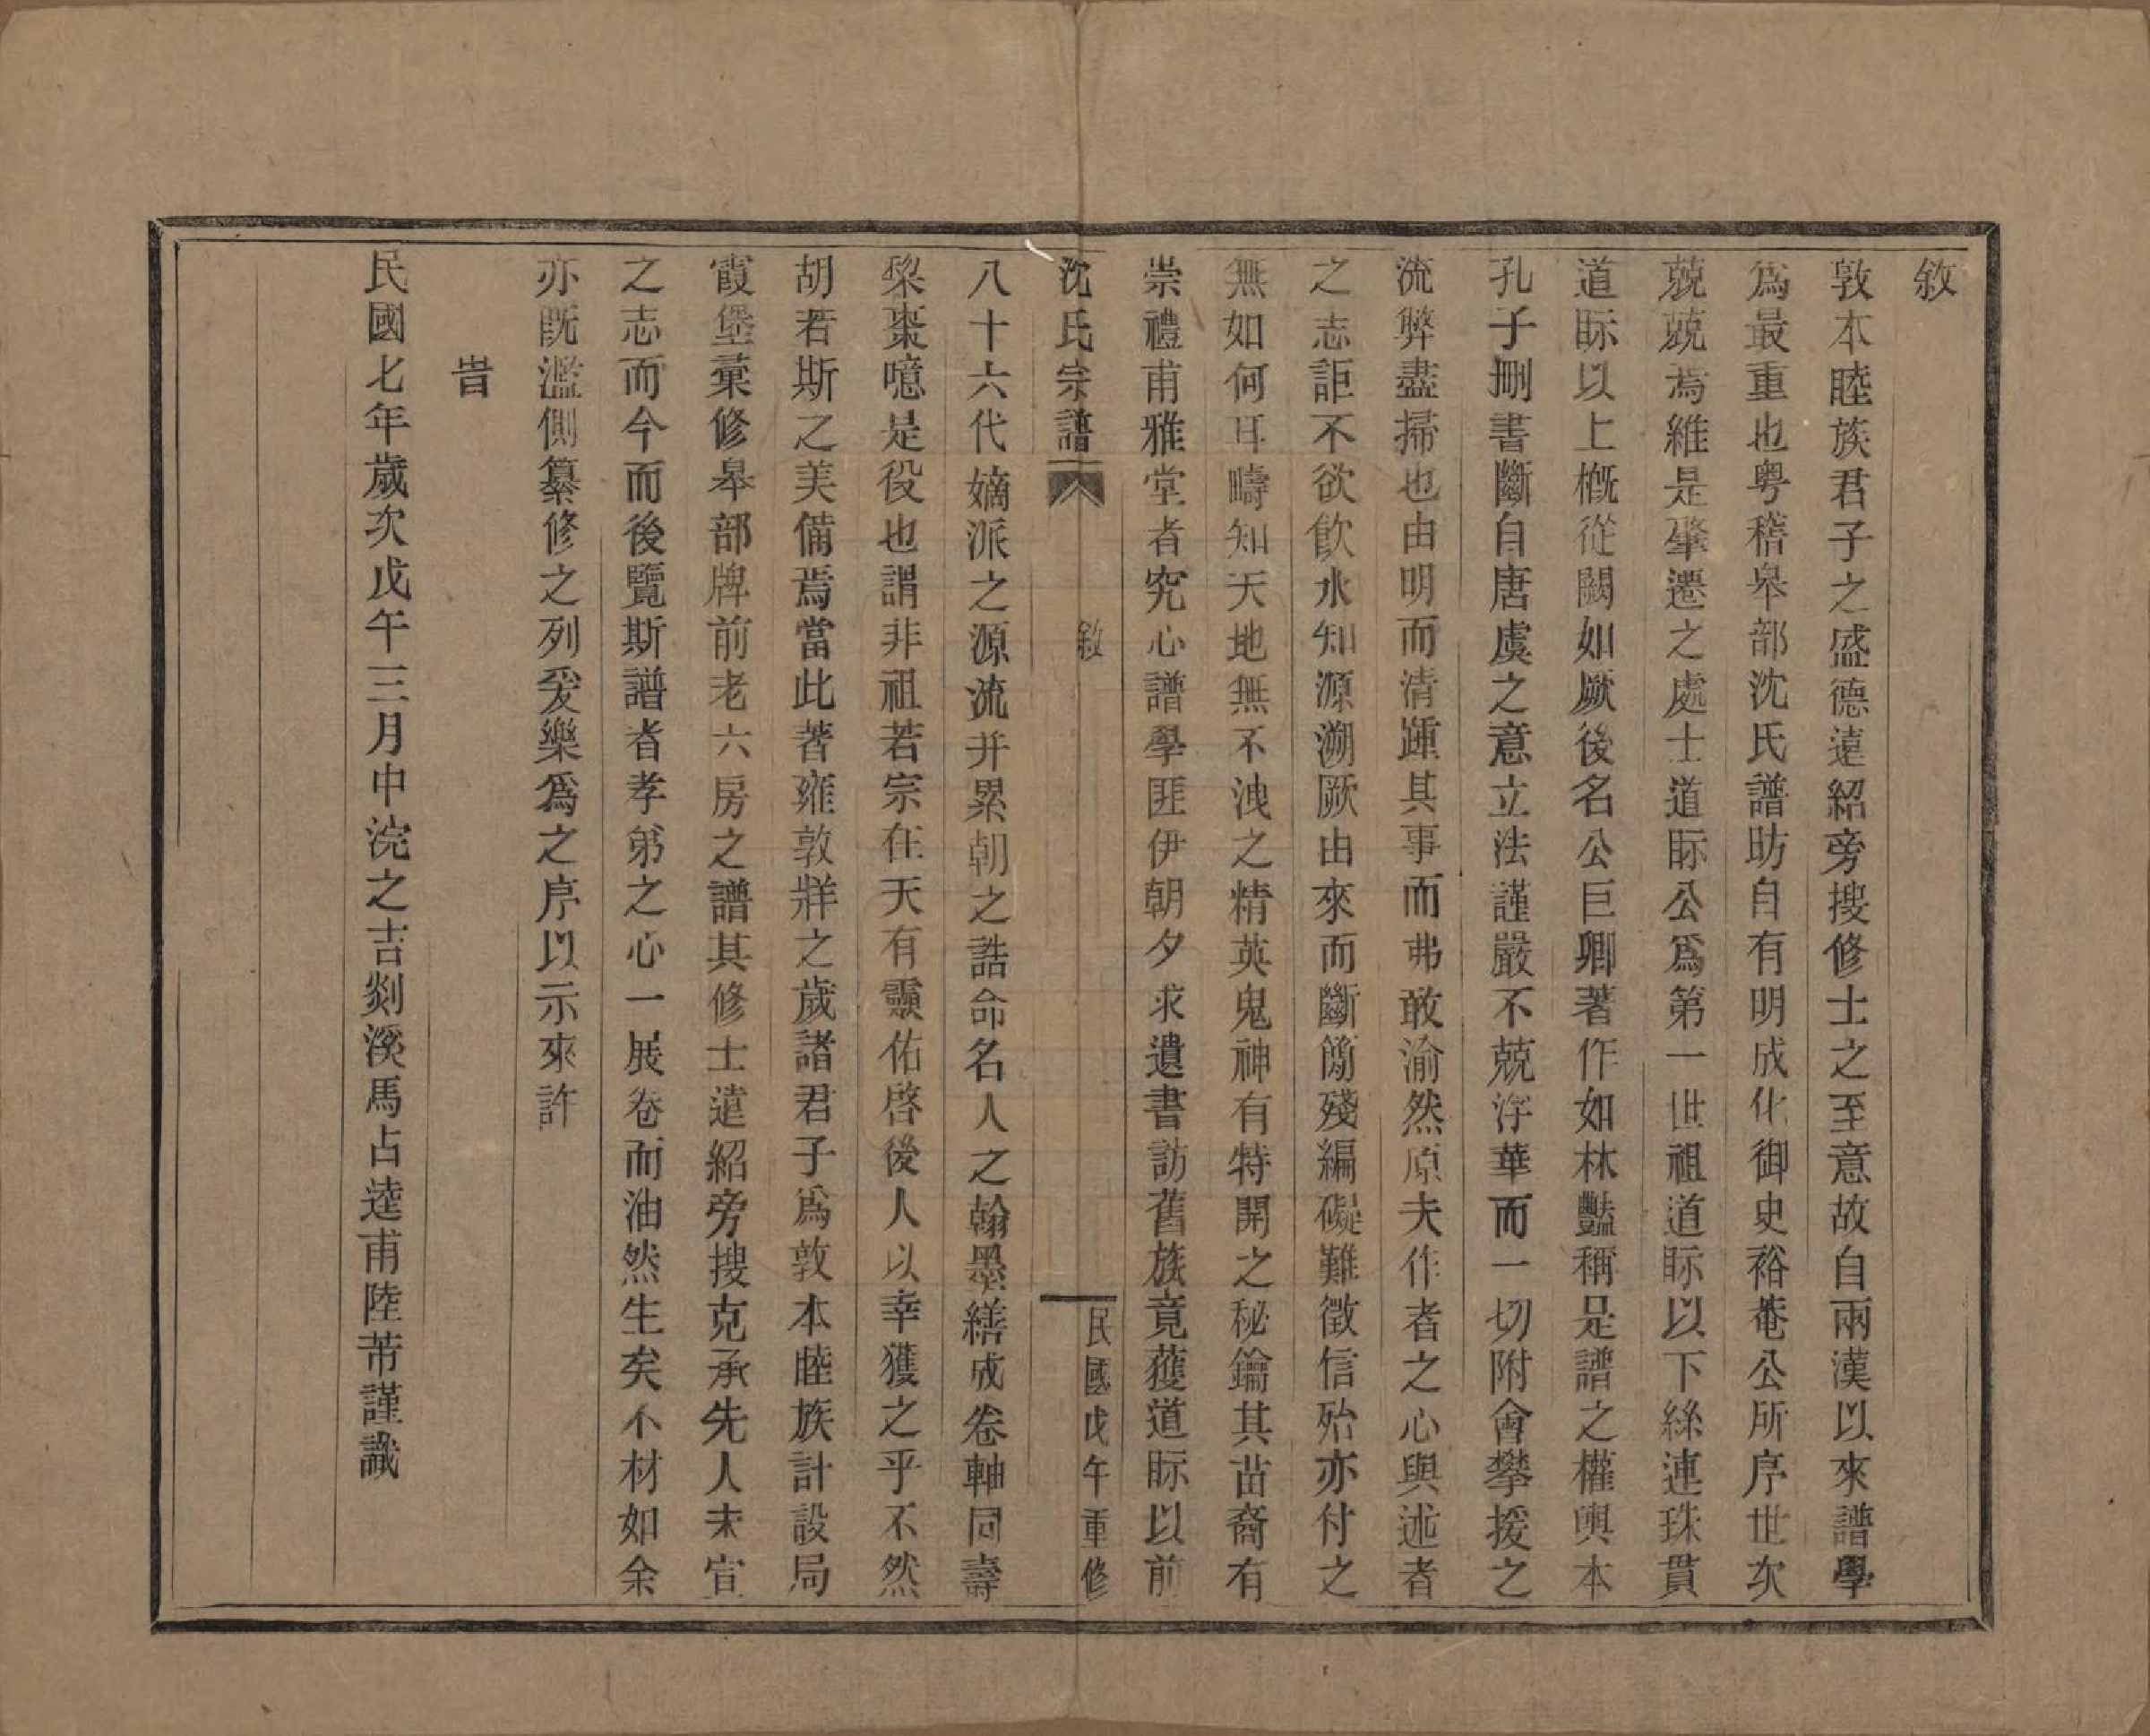 敘
敦本睦族君子之盛德遠紹旁搜修士之至意故自兩漢以來譜學
爲最重也粤稽皋部沈氏譜昉自有明成化御史裕菴公所序世次
兢兢焉維是肇遷之處士道眎公爲第一世祖道眎以下絲連珠貫
道眎以上概從闕如厥後名公巨卿著作如林豔稱是譜之權輿本
孔子刪書斷自唐虞之意立法謹嚴不兢浮華而一切附會攀援之
流弊盡掃也由明而清踵其事而弗敢渝然原夫作者之心與述者
之志詎不欲飮水知源溯厥由來而斷簡殘編礙難徵信殆亦付之
無如何耳疇知天地無不洩之精英鬼神有特開之秘鑰其苗裔有
崇禮甫雅堂者究心譜學匪伊朝夕求遺書訪舊族竟獲道眎以前
沈氏宗譜 敘 民國戊午重修
八十六代嫡派之源流并累朝之誥命名人之翰墨繕成卷軸同壽
棃棗噫是役也謂非祖若宗在天有靈佑啓後人以幸獲之乎不然
胡若斯之美備焉當此著雍敦牂之歲諸君子爲敦本睦族計設局
霞堡彙修皋部牌前老六房之譜其修士遠紹旁搜克承先人未宣
之志而今而後覽斯譜者孝弟之心一展卷而油然生矣不材如余
亦旣濫側纂修之列爰樂爲之序以示來許
旹
民國七年歲次戊午三月中浣之吉剡溪馬占逵甫陸芾謹識